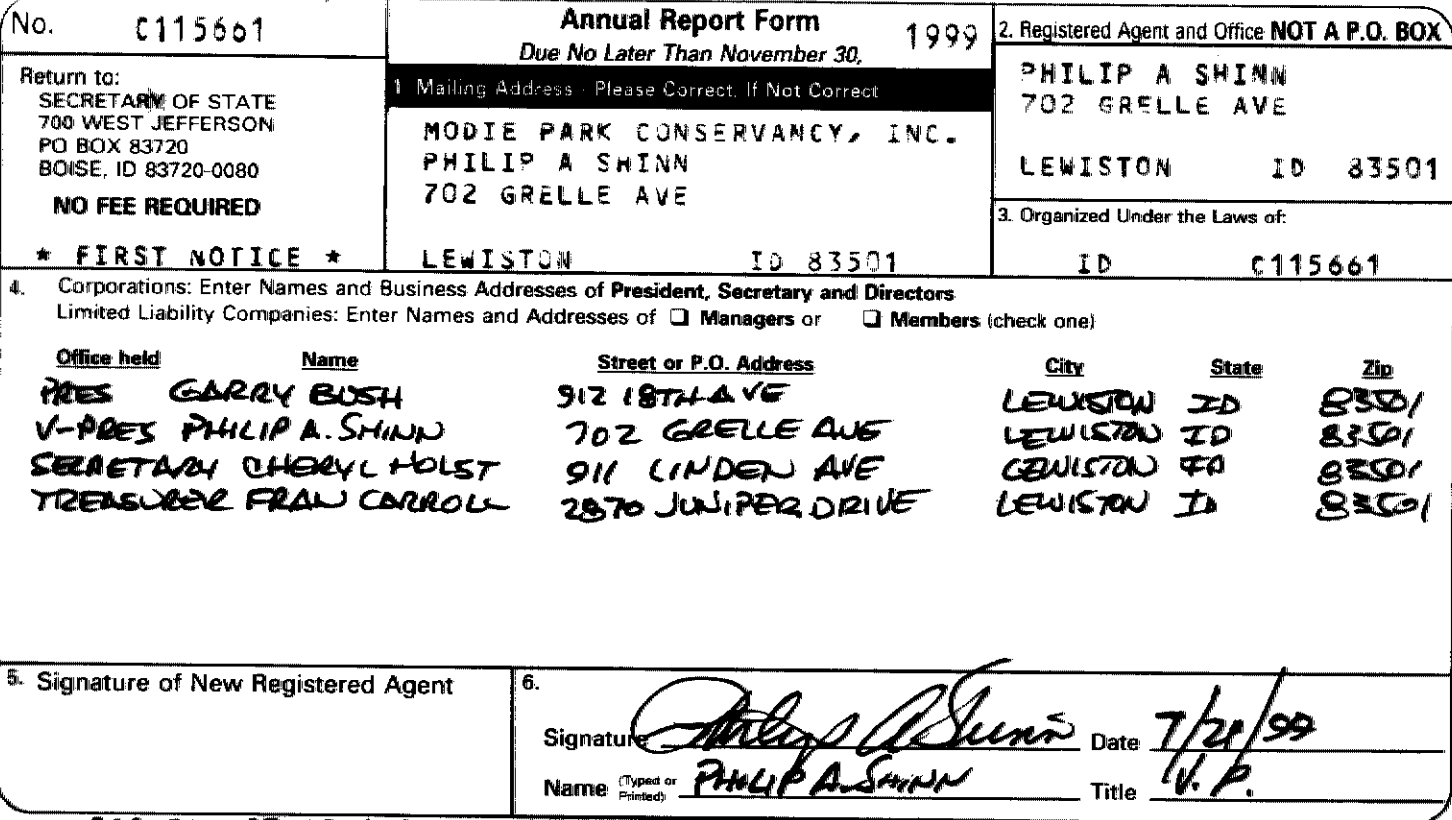 No. C115661
Annual Report Form 1999
Due No Later Than November 30,
Return to:
SECRETARY OF STATE
700 WEST JEFFERSON
PO BOX 83720
BOISE, ID 83720-0080
NO FEE REQUIRED
* FIRST NOTICE *
1 Mailing Address - Please Correct, If Not Correct
MODIE PARK CONSERVANCY, INC.
PHILIP A SHINN
702 GRELLE AVE
LEWISTON ID 83501
2. Registered Agent and Office NOT A P.O. BOX
PHILIP A SHINN
702 GRELLE AVE
LEWISTON ID 83501
3. Organized Under the Laws of:
ID C115661
4. Corporations: Enter Names and Business Addresses of President, Secretary and Directors
Limited Liability Companies: Enter Names and Addresses of ☐ Managers or ☐ Members (check one)
Office held Name Street or P.O. Address City State Zip
PRES GARRY BUSH 912 18TH AVE LEWISTON ID 83501
V-PRES PHILIP A. SHINN 702 GRELLE AVE LEWISTON ID 83501
SECRETARY CHERYL HOLST 911 LINDEN AVE LEWISTON ID 83501
TREASURER FRAN CARROLL 2870 JUNIPER DRIVE LEWISTON ID 83501
5. Signature of New Registered Agent
6.
Signature Philip A Shinn Date 7/28/99
Name (Typed or Printed) PHILIP A. SHINN Title V. P.